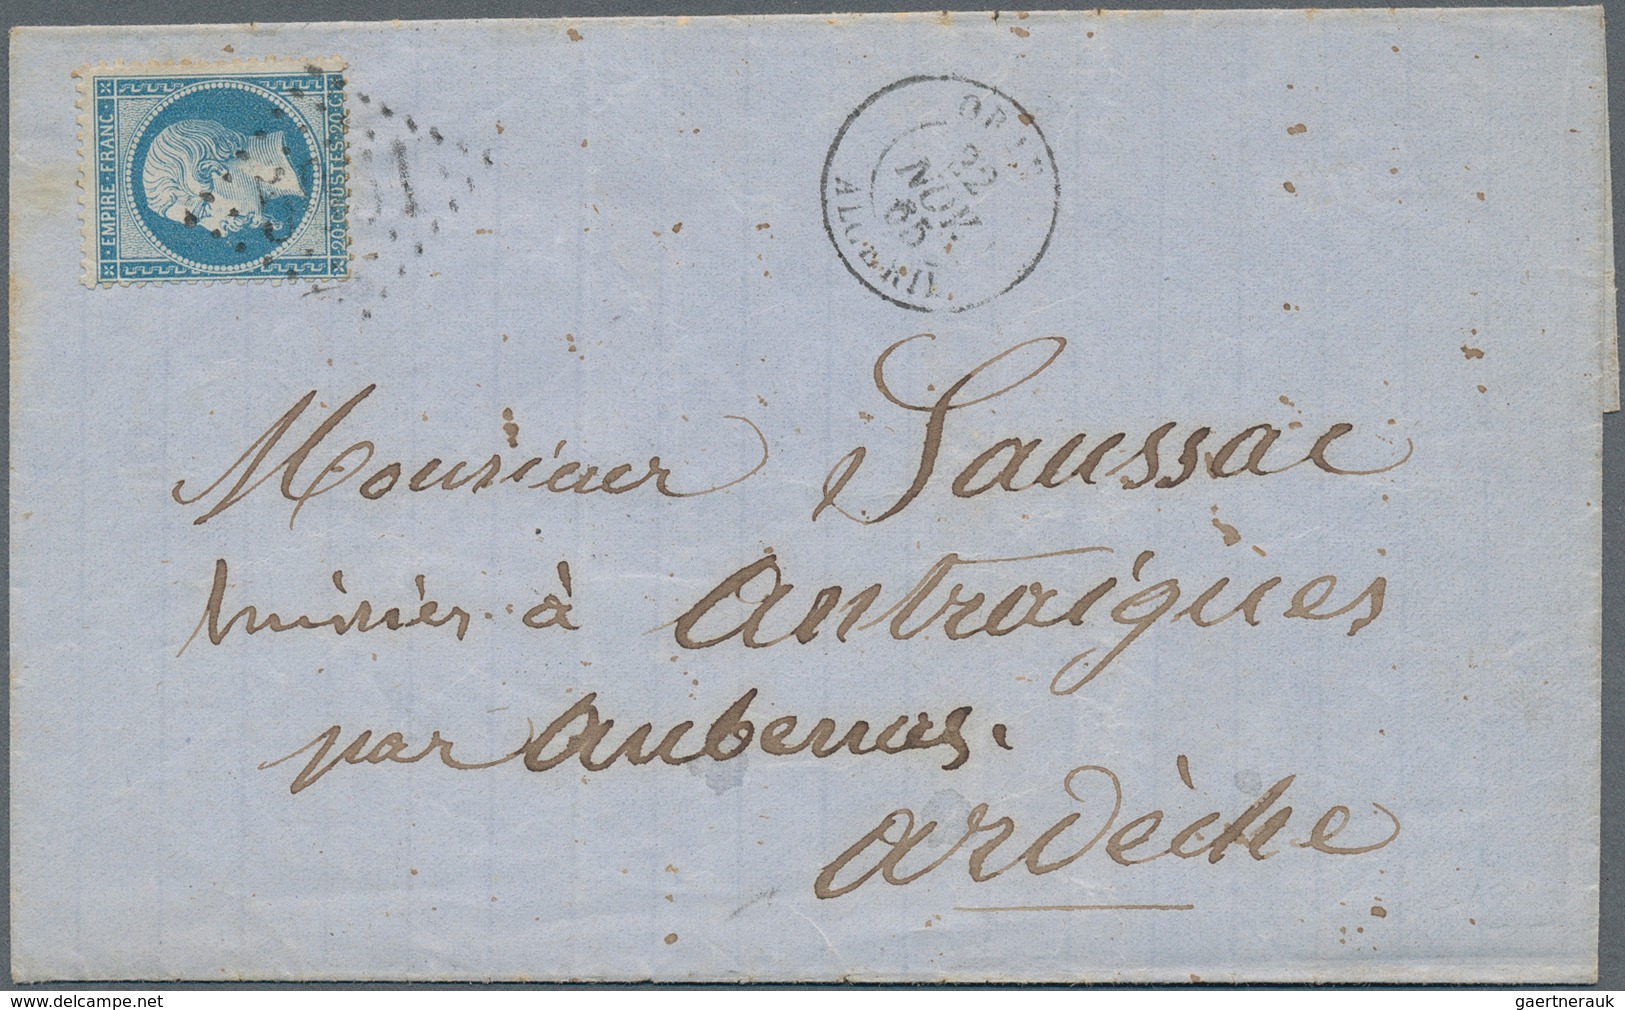 EMPIRE·FRANC·
20·C·POSTES·20·C·
22
NOV.
65
Monsieur Saussac
huissier à Antraigues
par Aubenas.
Ardèche
www.delcampe.net
gaertnerauk